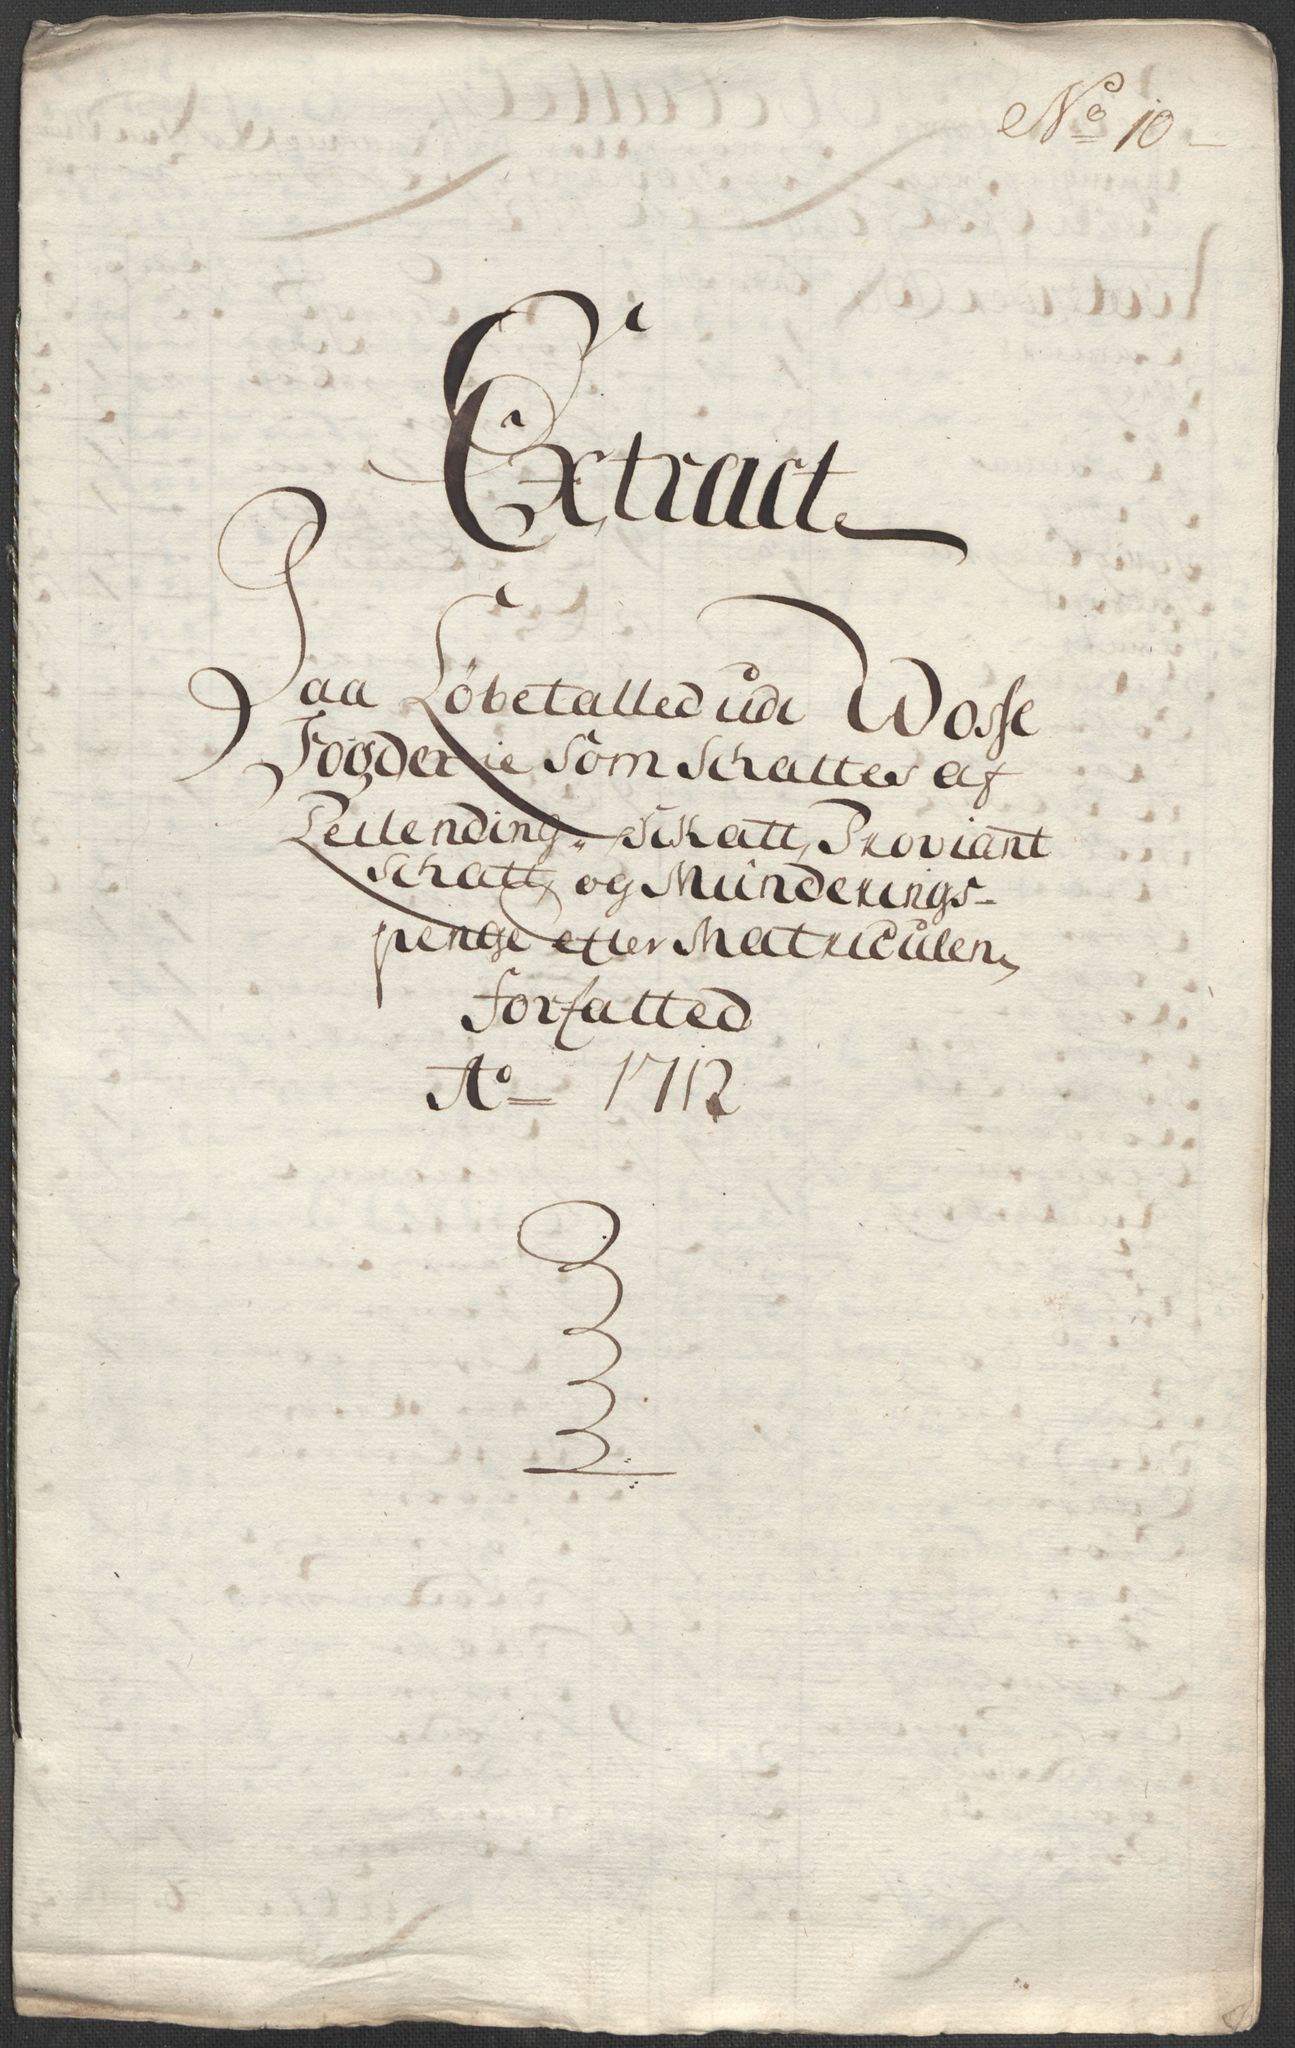 No 10
Extract
Paa Löbetalled udi Wosse
Fogderie Som Schattes af
Leilending Skatt, Proviant
Schatt, og Münderings-
penge efter Matriculen,
forfatted
Ao 1712